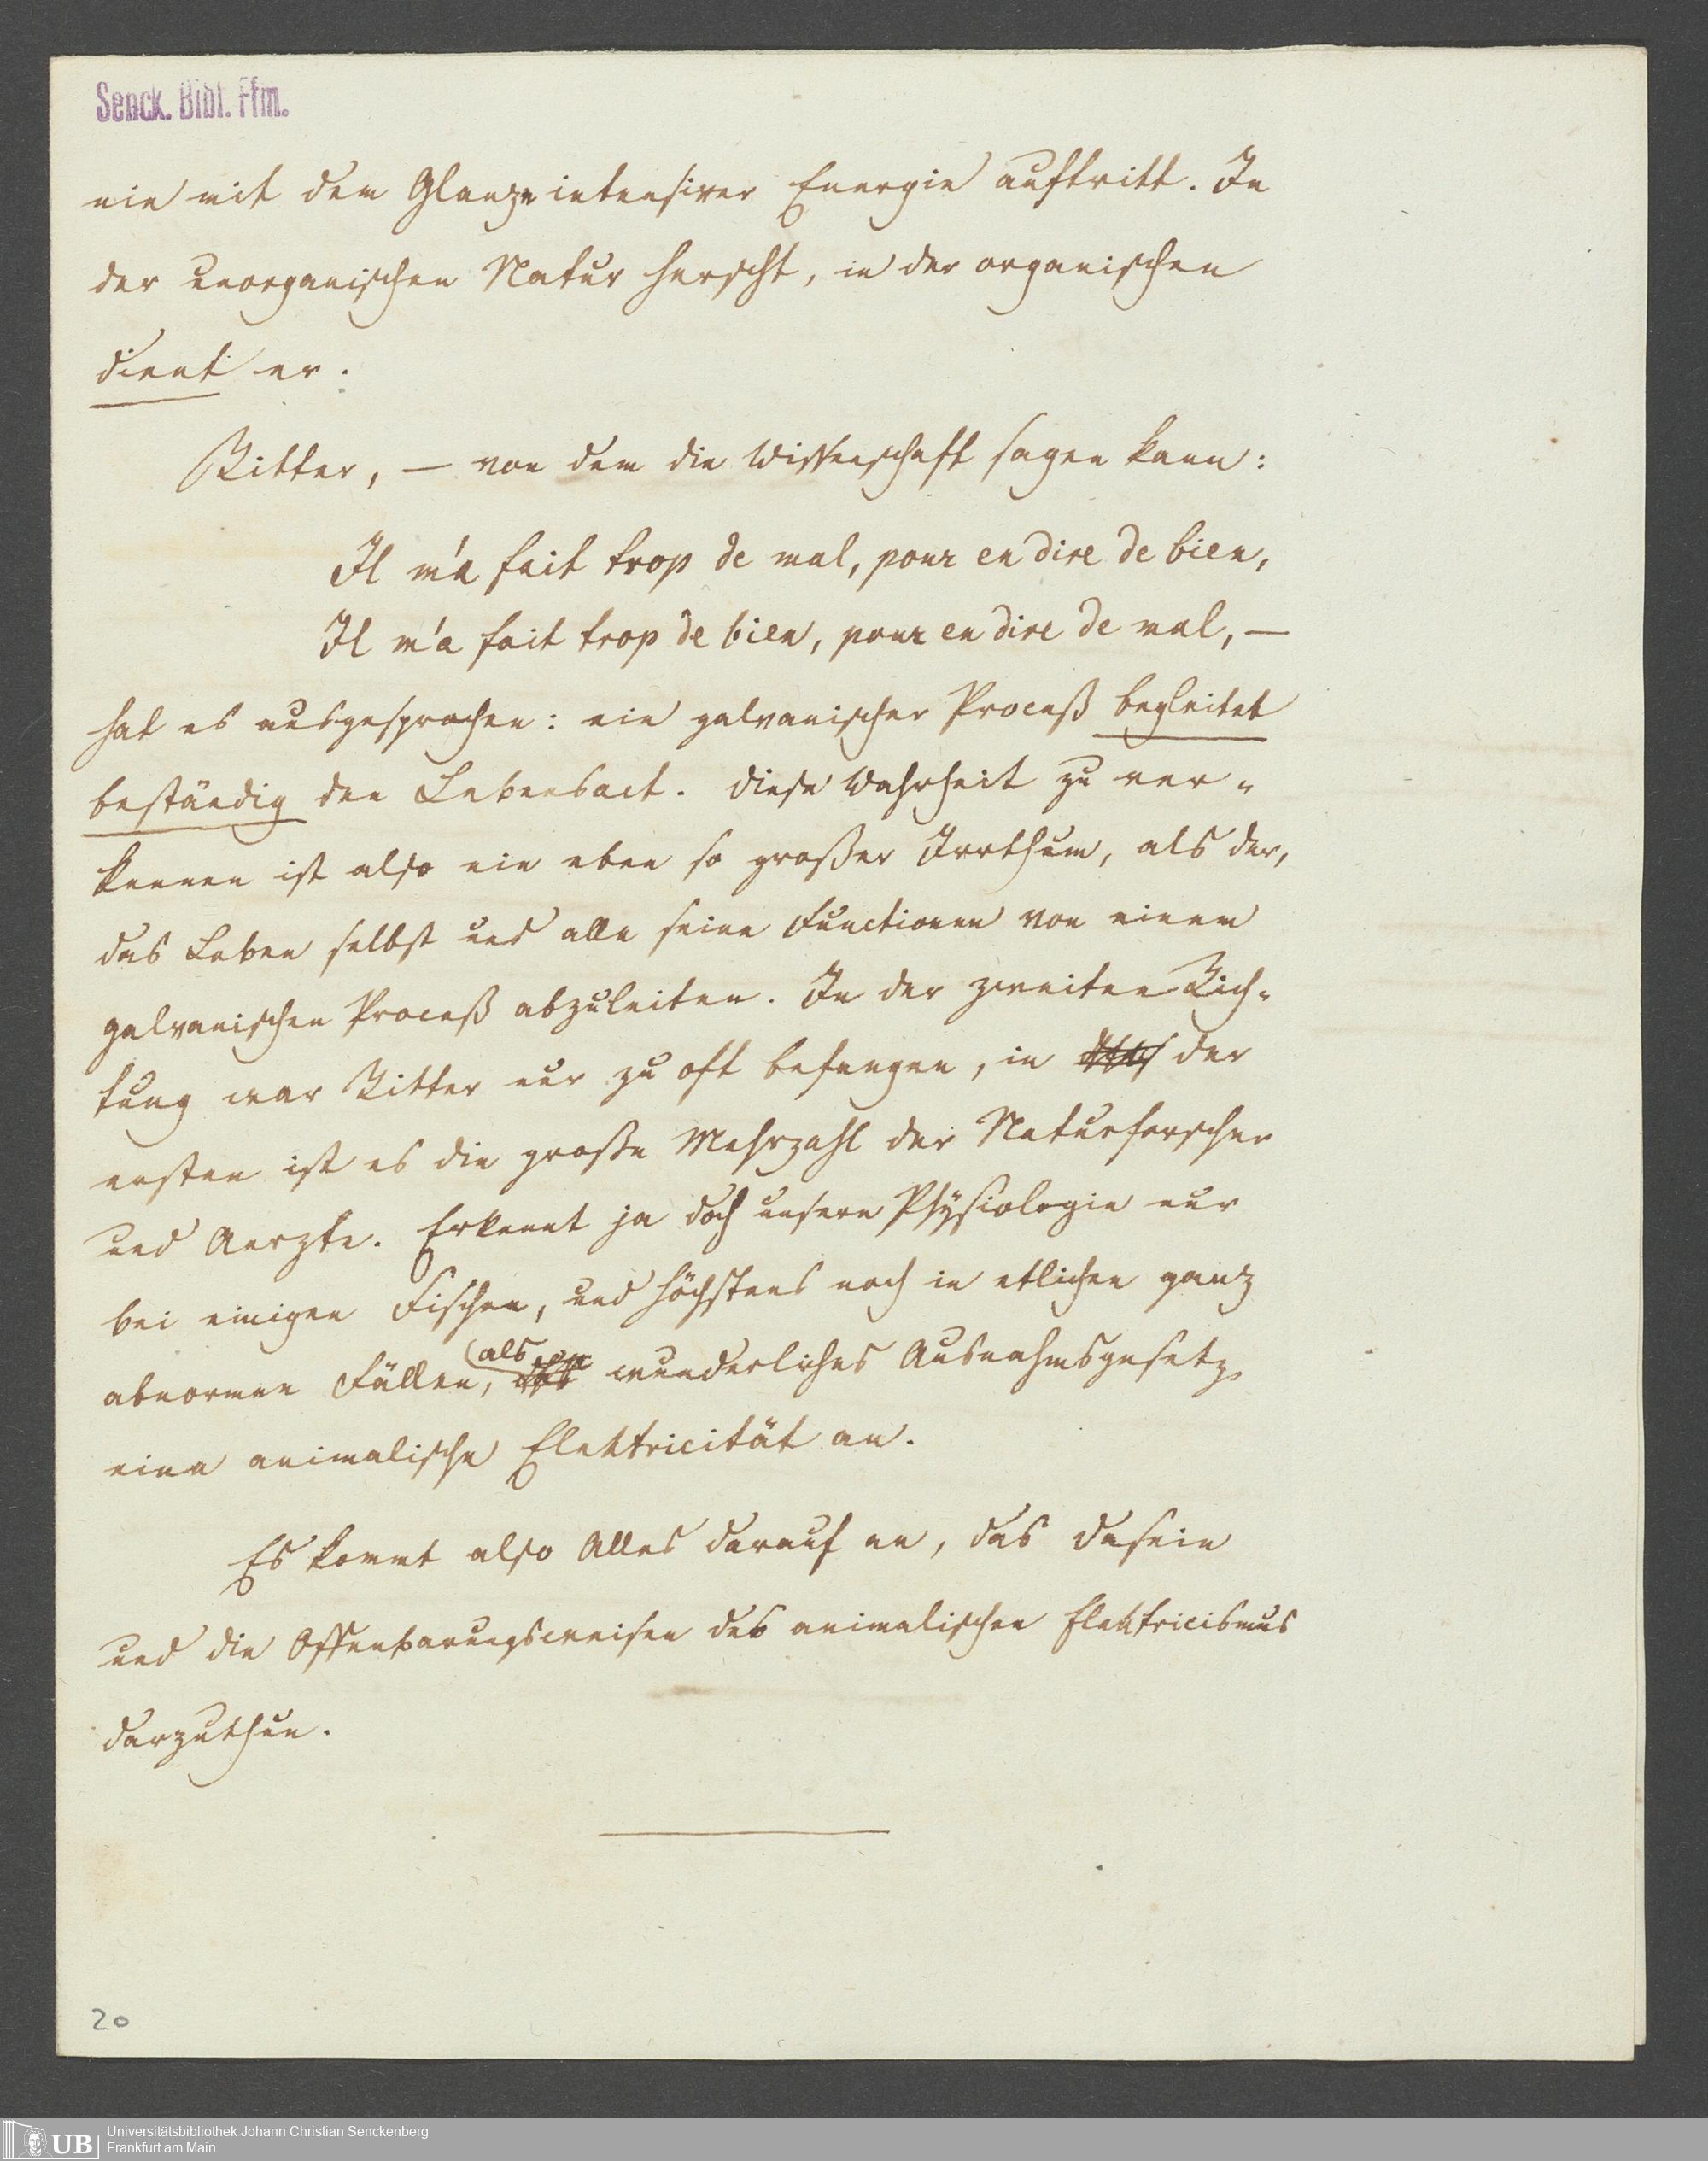 Senck. Bibl. Ffm.
nie mit dem Glanze intensiver Energie auftritt. In
der unorganischen Natur herrscht, in der organischen
dient er.
Ritter, — von dem die Wissenschaft sagen kann:
Il m'a fait trop de mal, pour en dire de bien,
Il m'a fait trop de bien, pour en dire de mal, —
hat es ausgesprochen: ein galvanischer Proceß begleitet
beständig den Lebensact. Diese Wahrheit zu ver-
kennen ist also ein eben so großer Irrthum, als der,
das Leben selbst und alle seine Functionen von einem
galvanischen Proceß abzuleiten. In der zweiten Rich-
tung war Ritter nur zu oft befangen, in der
ersten ist es die große Mehrzahl der Naturforscher
und Aerzte. Erkennt ja doch unsere Physiologie nur
bei einigen Fischen, und höchstens noch in etlichen ganz
abnormen Fällen, als wunderliches Ausnahmsgesetz,
eine animalische Elektricität an.
Es kommt also Alles darauf an, das Dasein
und die Offenbarungsweisen des animalischen Elektricismus
darzuthun.
20
UB
Universitätsbibliothek Johann Christian Senckenberg
Frankfurt am Main